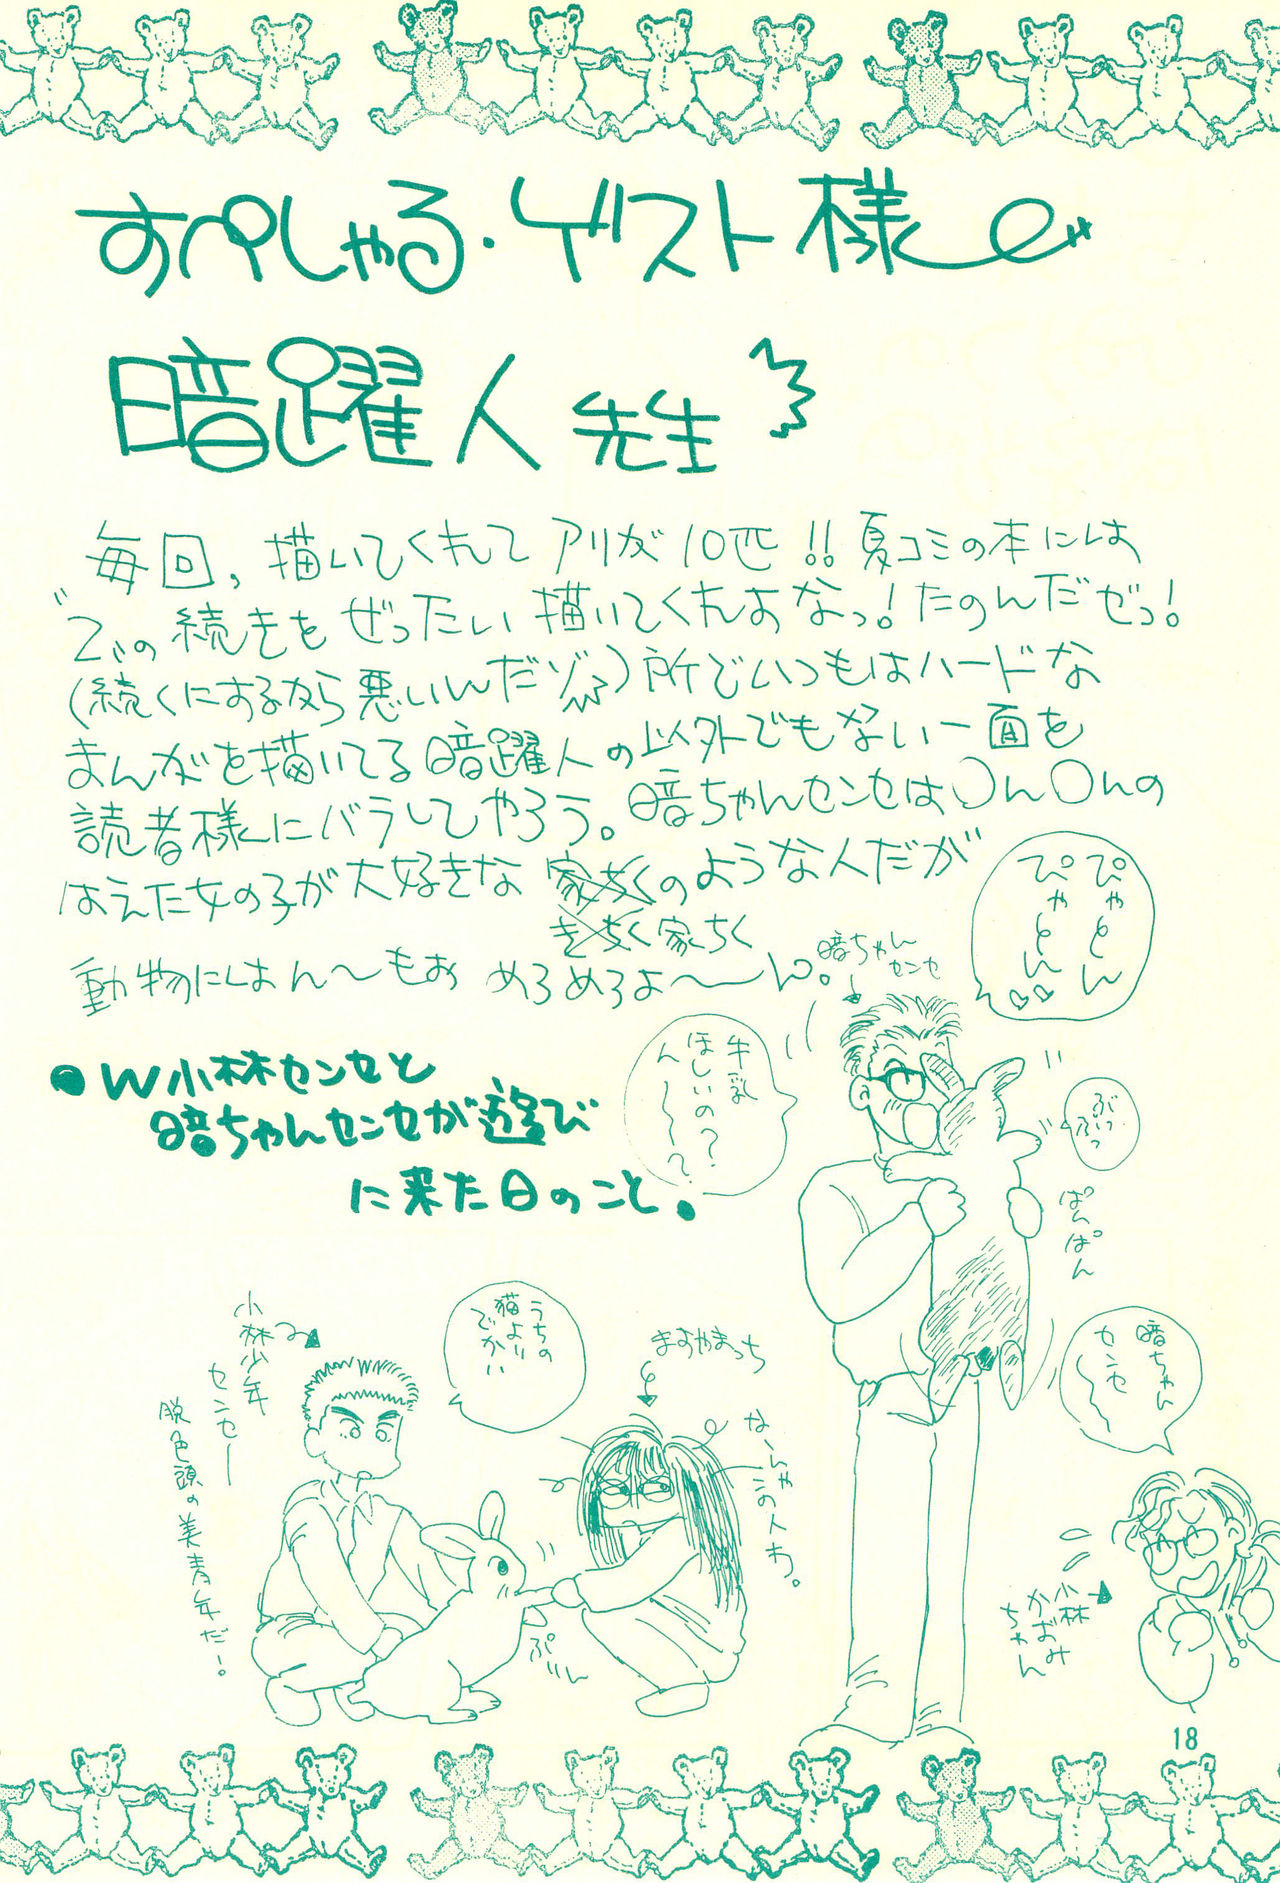 すぺしゃる・ゲスト様
暗躍人先生
毎回,描いてくれてアリが10匹!!夏コミの本には
"Z"の続きをぜったい描いてくれよなっ!たのんだぜっ!
(続くにするなら悪いんだゾ)所でいつもはハードな
まんがを描いてる暗躍人の以外でもない一面を
読者様にバラしてやろう。暗ちゃんセンセは〇ん〇んの
はえた女の子が大好きな家ちくのような人だが
きちく家ちく
動物にはん〜もお めろめろよ〜ん。
●W小林センセと
暗ちゃんセンセが遊び
に来た日のこと。
暗ちゃん
センセ
ぴゃとん
ぴゃとん♡♡
牛乳
ほしいの?
ん〜〜?
ぶっ
ぶっ
ぱんぱん
暗ちゃん
センセ〜
小林
かおみ
ちゃん
ますやまっち
な〜んゃこの人わ。
うちの
猫より
でかい
小林少年
センセー
脱色頭の美青年だ!
ぷいん
18